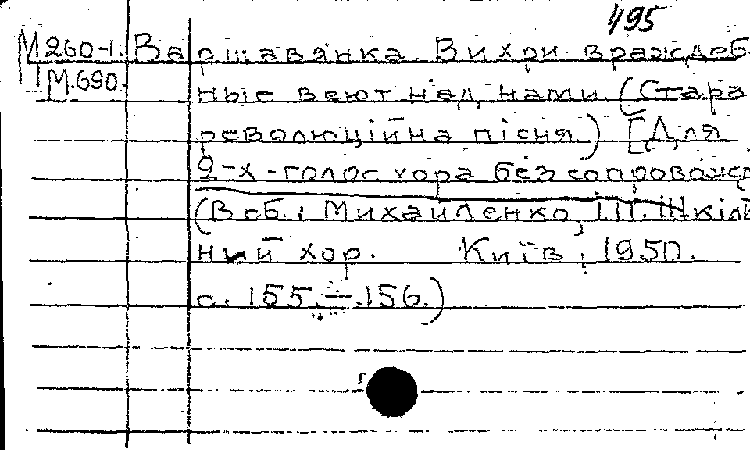 495
М260-1. Варшавянка. Вихри враждеб
М.690. ные веют над нами (Стара
революційна пісня) [Для
2-х-голос хора без сопровожд
(В сб.: Михайленко, Шкіль
ний хор. Київ, 1950.
с. 155.-.156.)